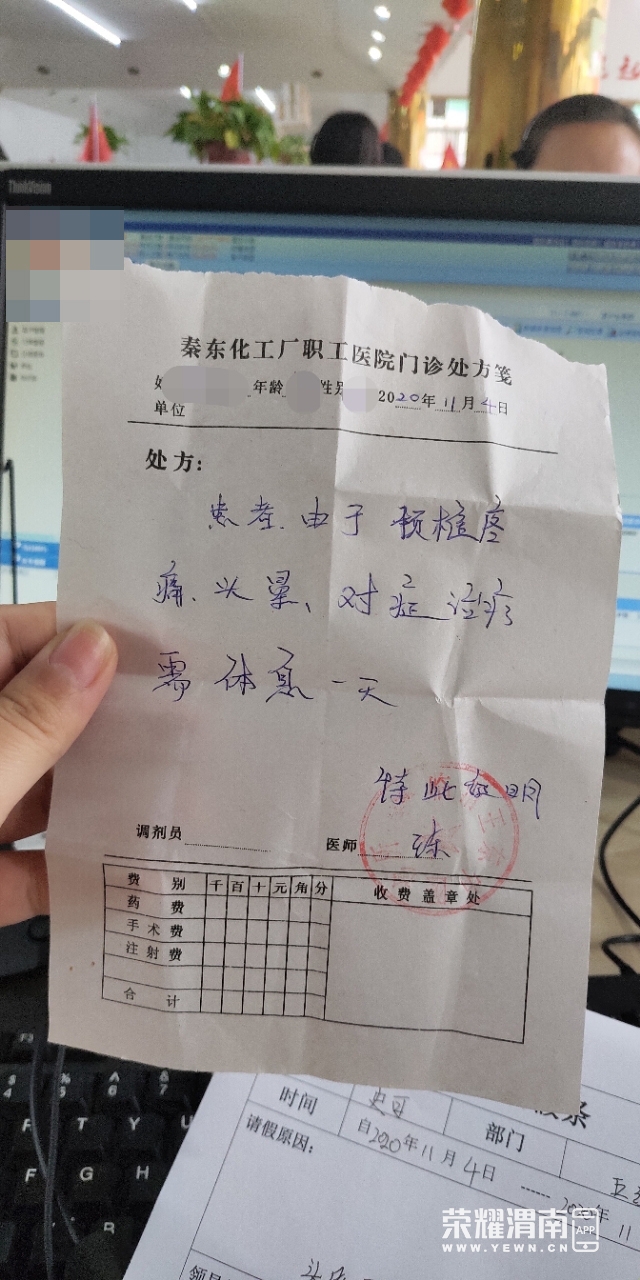 ThinkVision
秦东化工厂职工医院门诊处方笺
年龄 性别 2020年11月4日
单位
处方：
患者．由于颈椎疼
痛、头晕、对症治疗
需休息一天
特此证明
调剂员 医师
费别 千 百 十 元 角 分 收费盖章处
药费
手术费
注射费
合计
假条
时间 部门
自2020年11月4日 ----- 2020年11
请假原因：
荣耀渭南 APP
WWW.YEWN.CN